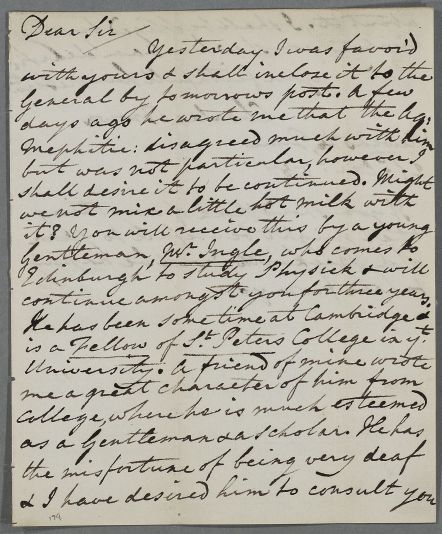 Dear Sir
Yesterday I was favor'd
with yours & shall inclose it to the
General by tomorrows post. A few
days ago he wrote me that the Aq:
Mephitic: disagreed much with him
but was not particular, however I
shall desire it to be continued. Might
we not mix a little hot milk with
it? You will receive this by a young
Gentleman, Mr. Ingle, who comes to
Edinburgh to study Physick & will
continue amongst you for three years.
He has been some time at Cambridge &
is a Fellow of St. Peters College in yt.
University. A friend of mine wrote
me a great character of him from
College, where he is much esteemed
as a Gentleman & a Scholar. He has
the misfortune of being very deaf
& I have desired him to consult you